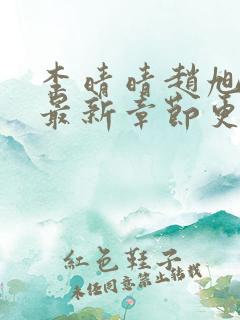 李晴晴趙旭
最新章節更
紅色鞋子
未经同意禁止转载